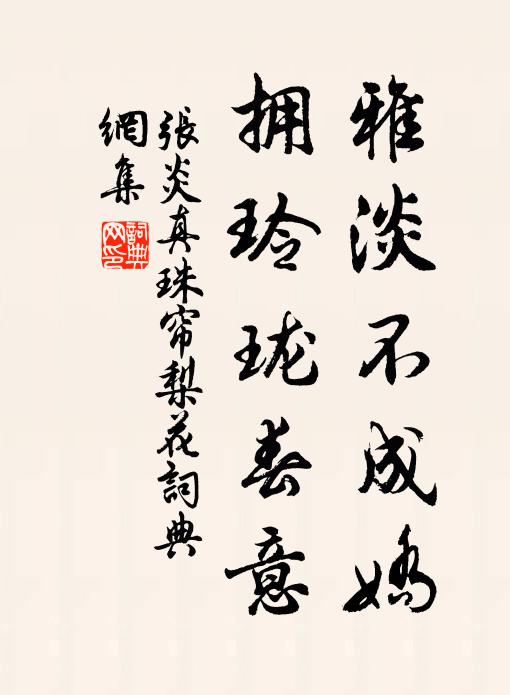 雅淡不成娇
拥玲珑春意
張炎真珠帘梨花詞典
網集
詞典
网印